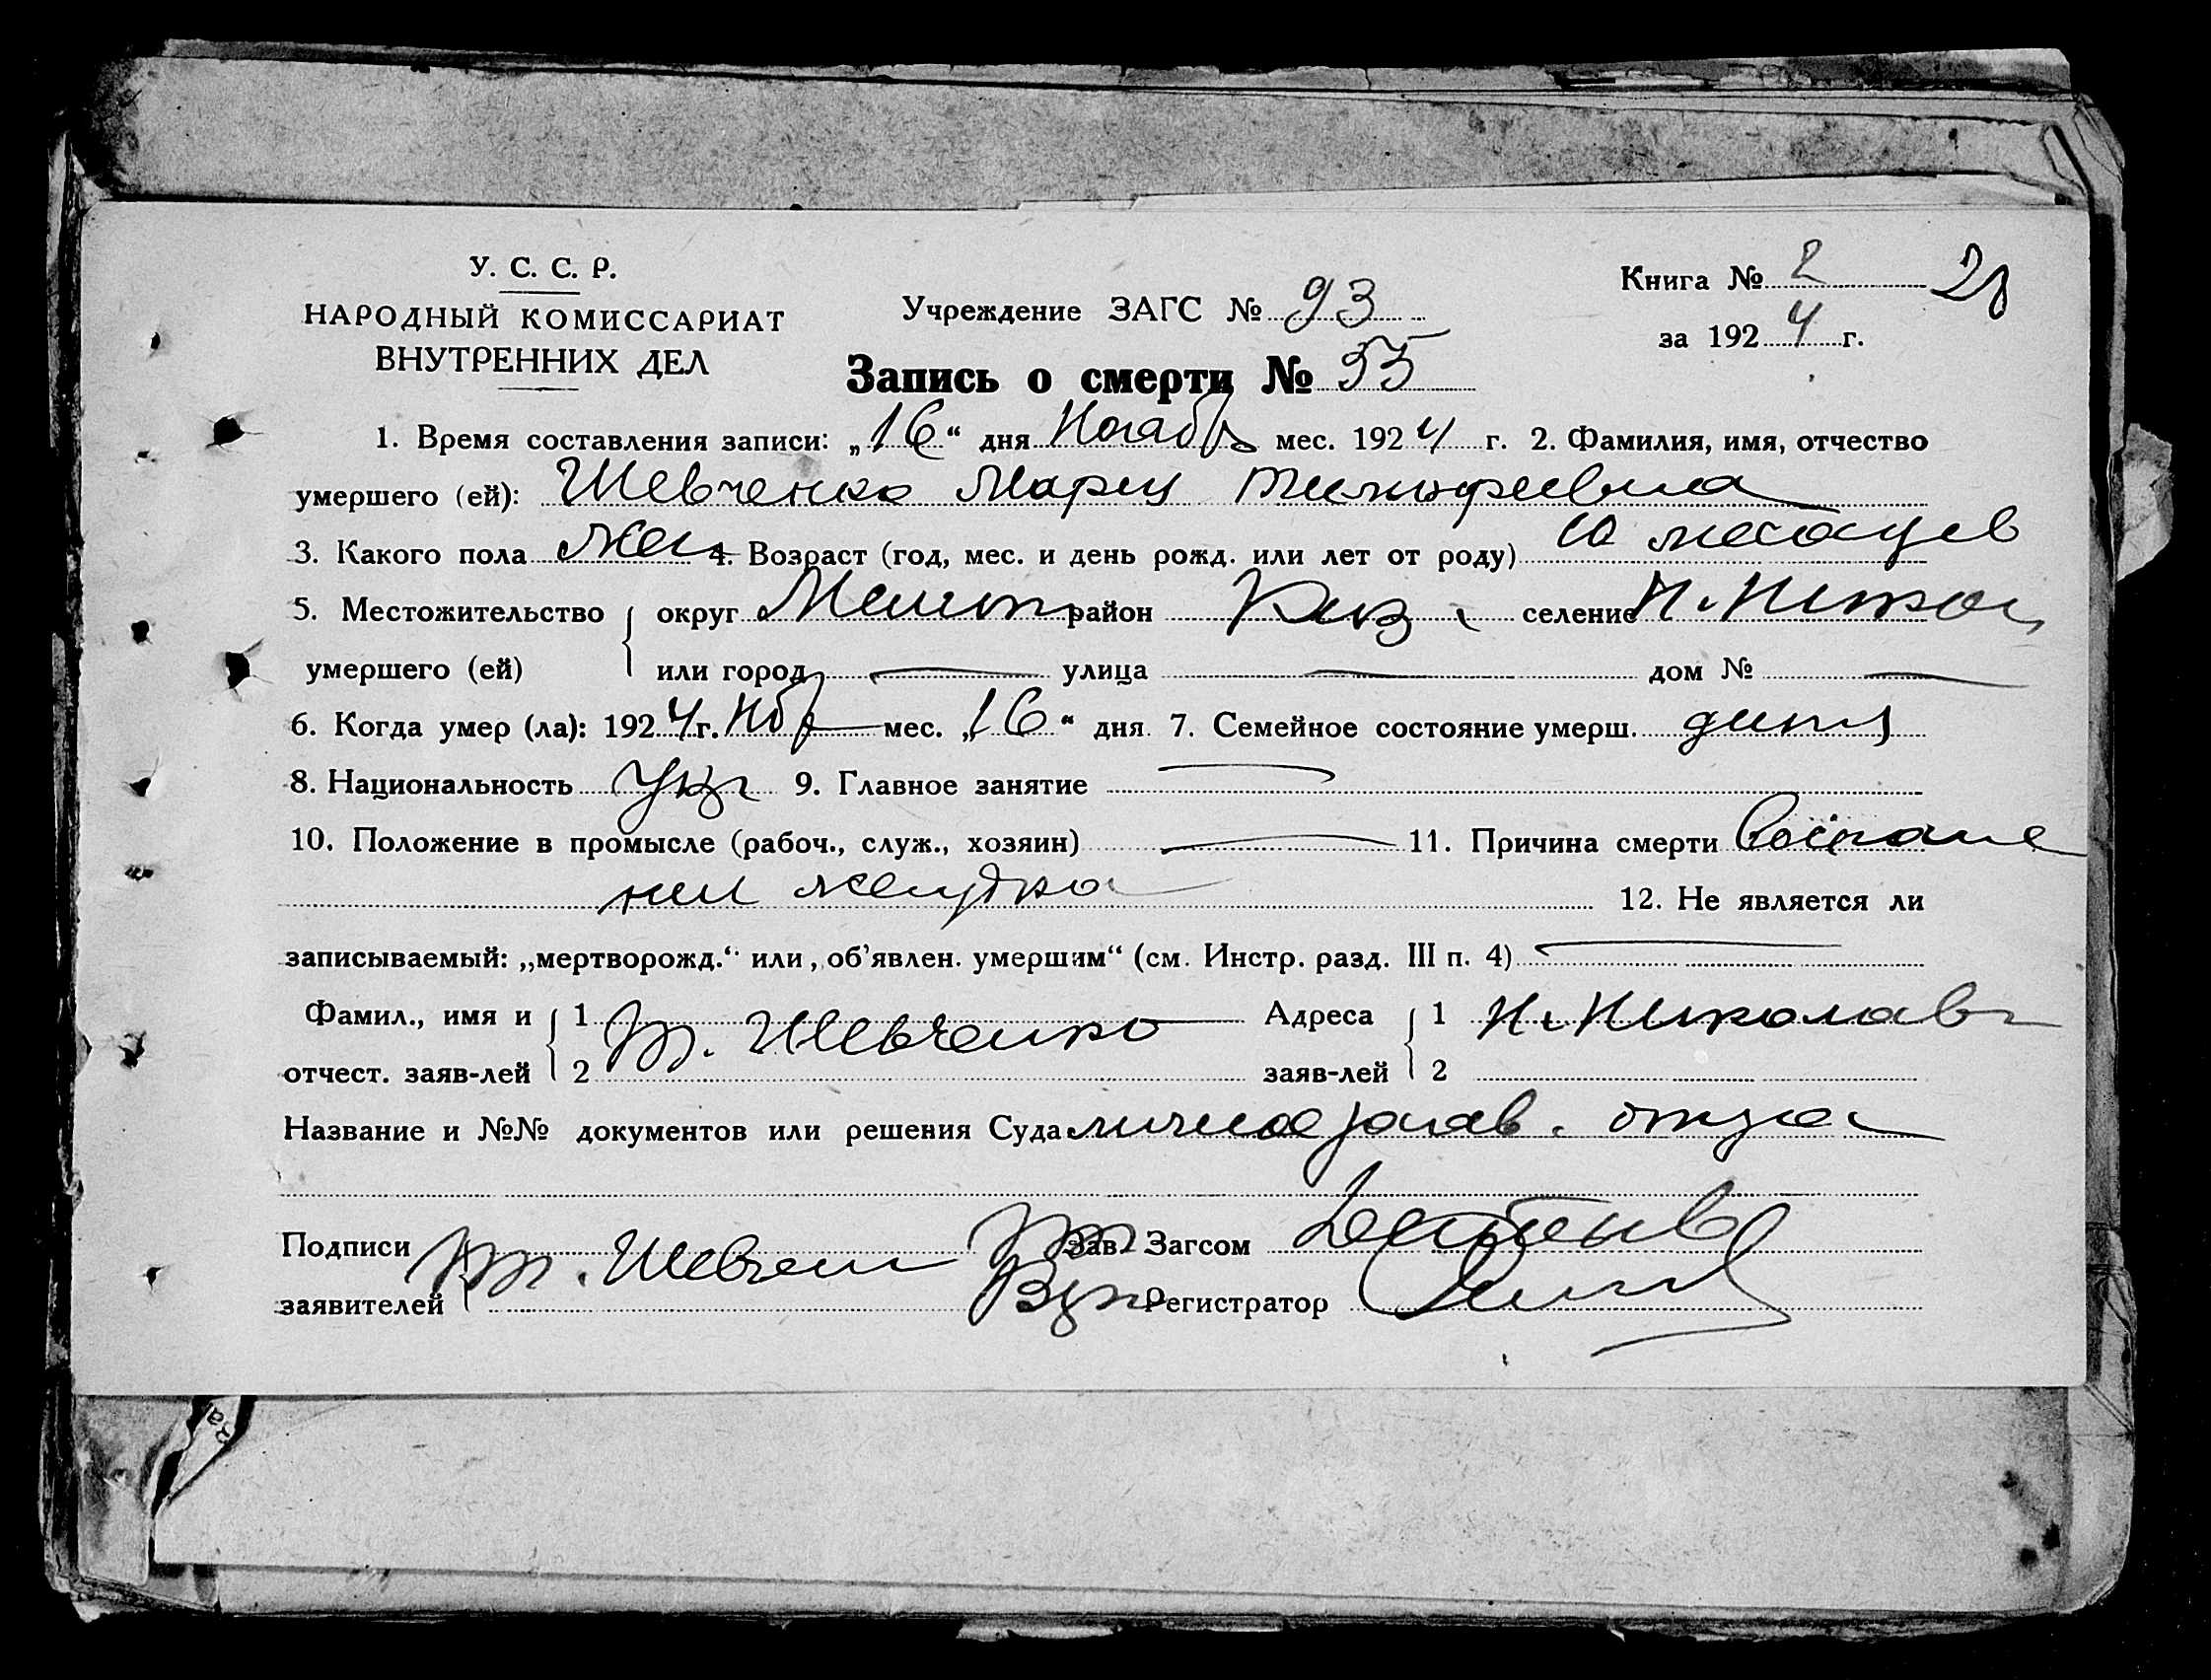 У. С. С. Р.
НАРОДНЫЙ КОМИССАРИАТ
ВНУТРЕННИХ ДЕЛ
Учреждение ЗАГС № 93
Запись о смерти № 55
Книга № 2 28
за 1924 г.
1. Время составления записи: „16“ дня Ноября мес. 1924 г. 2. Фамилия, имя, отчество
умершего (ей): Шевченко Мария Тимофеевна
3. Какого пола жен 4. Возраст (год, мес. и день рожд. или лет от роду) 10 месяцев
5. Местожительство округ Мелит район селение
умершего (ей) или город — улица — дом № —
6. Когда умер (ла): 1924 г. Нбр мес. „16“ дня 7. Семейное состояние умерш. дитя
8. Национальность Укр 9. Главное занятие —
10. Положение в промысле (рабоч., служ., хозяин) — 11. Причина смерти Воспале
нии желудка 12. Не является ли
записываемый: „мертворожд.“ или „об'явлен. умершим“ (см. Инстр. разд. III п. 4) —
Фамил., имя и 1 Т. Шевченко Адреса 1 Н. Николавк
отчест. заяв-лей 2 заяв-лей 2
Название и №№ документов или решения Суда личное заяв. отца
Подписи Т. Шевчен Зав. Загсом
заявителей Регистратор